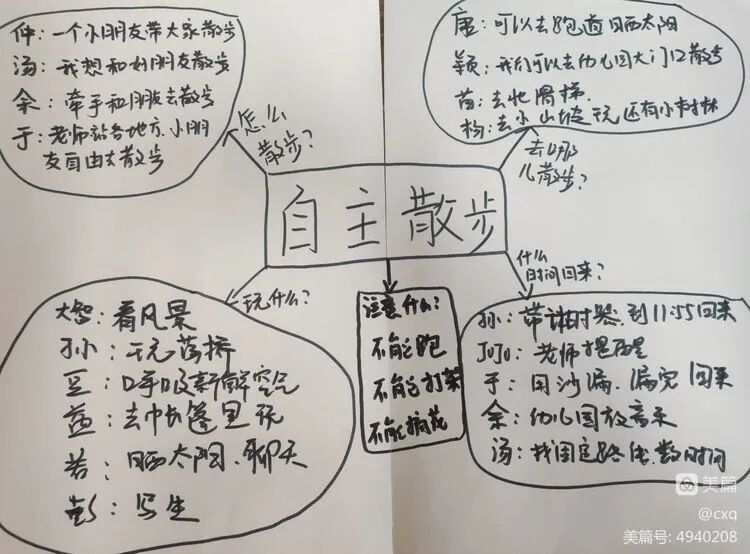 仲：一个小朋友带大家散步
汤：我想和好朋友散步
余：牵手和朋友去散步
于：老师站各地方、小朋
友自由去散步
怎么
散步？
唐：可以去跑道晒太阳
颖：我们可以去幼儿园大门口散步
苗：去忙滑梯.
杨：去小山坡玩还有小树林
去哪
儿散步？
自主散步
什么
时间回来？
玩什么？
大智：看风景
孙：玩荡桥
豆：呼吸新鲜空气
蓝：去帐篷里玩
若：晒太阳、聊天
彭：写生
注意什么？
不能跑
不能打架
不能摘花
孙：带计时器.到11:55回来
JOJO：老师提醒
于：用沙漏.漏完回来
余：幼儿园放音乐
汤：找固定路线.数时间
美篇
@cxq
美篇号：4940208